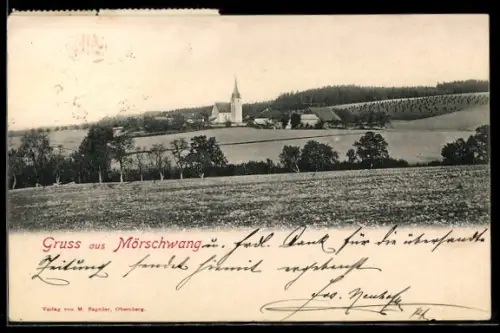 Gruss aus Mörschwang u. frdl. Dank für die übersandte
Zeitung sendet hiemit ergebenst
Jos.
Verlag von M. Bagniler, Obernberg.